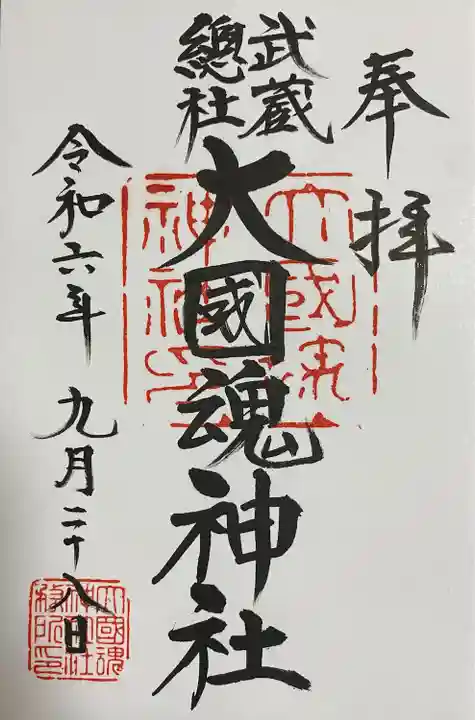 奉拝
武蔵
總社
大國魂神社
令和六年 九月二十八日
大國魂
神社
大國魂
神社
務所印